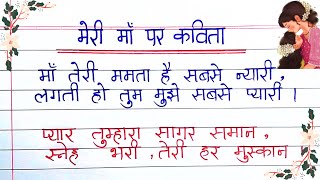 मेरी माँ पर कविता
माँ तेरी ममता है सबसे न्यारी,
लगती हो तुम मुझे सबसे प्यारी ।
प्यार तुम्हारा सागर समान,
स्नेह भरी ,तेरी हर मुस्कान